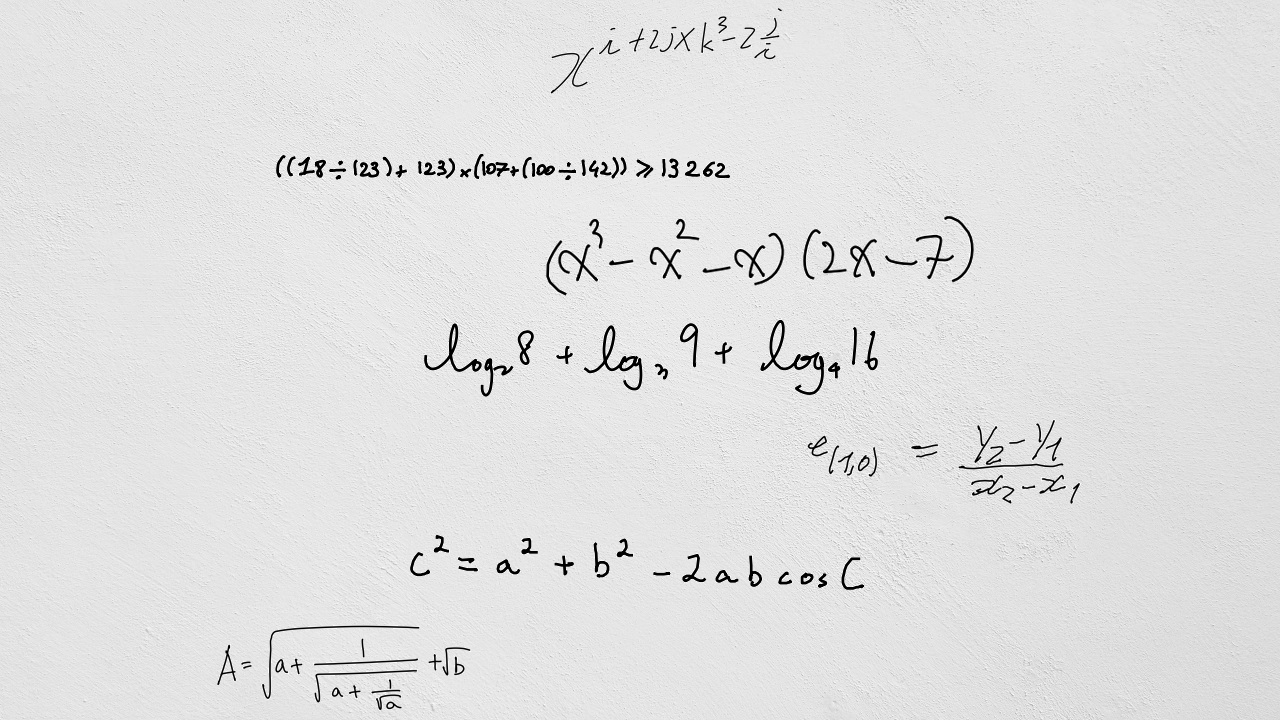 x^{i+2j×k^3-2\frac{j}{i}}
((18÷123)+123)×(107+(100÷142))≥13262
(x^3-x^2-x)(2x-7)
log_2 8+log_3 9+log_4 16
e_{(1,0)}=\frac{Y_2-Y_1}{x_2-x_1}
c^2=a^2+b^2-2ab cos C
A=\sqrt{a+\frac{1}{\sqrt{a+\frac{1}{\sqrt{a}}}}}+\sqrt{b}